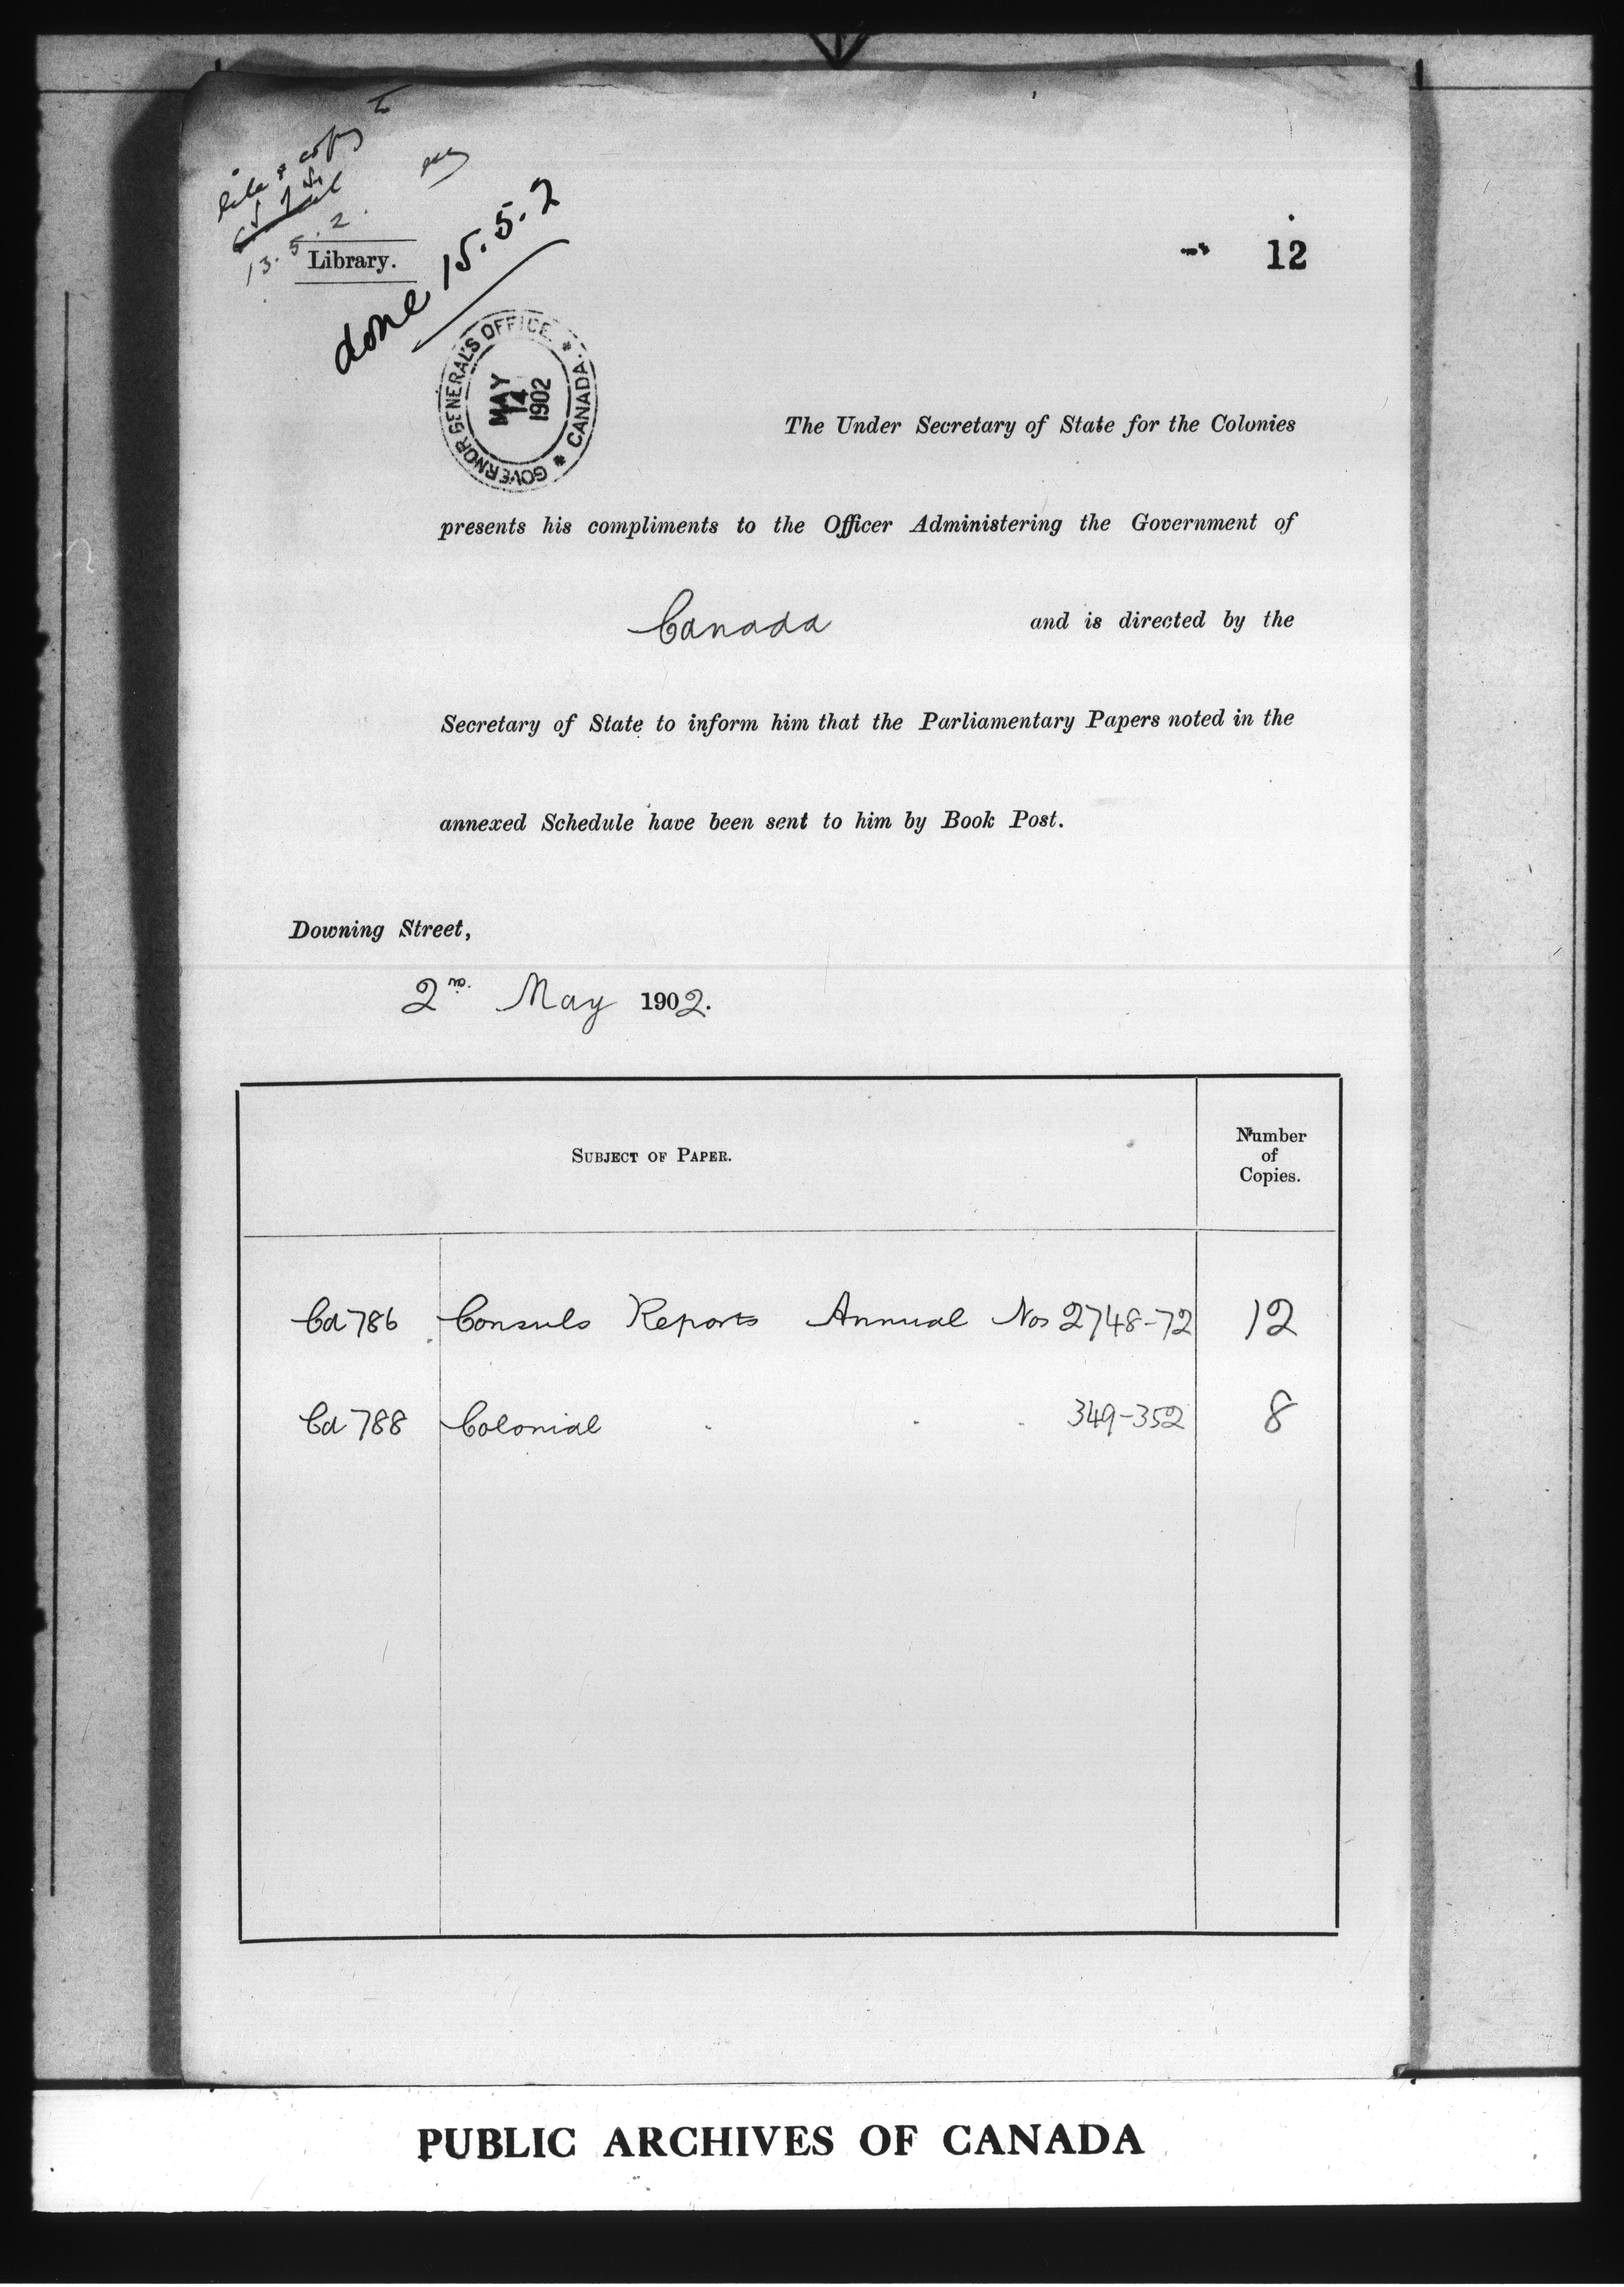 copy to
13.5.2.
Library.
done 15.5.2
12
GOVERNOR GENERAL'S OFFICE * CANADA *
MAY
14
1902
The Under Secretary of State for the Colonies
presents his compliments to the Officer Administering the Government of
Canada and is directed by the
Secretary of State to inform him that the Parliamentary Papers noted in the
annexed Schedule have been sent to him by Book Post.
Downing Street,
2nd. May 1902.
SUBJECT OF PAPER.
Number
of
Copies.
Cd 786 Consuls Reports Annual Nos 2748-72 12
Cd 788 Colonial . . . 349-352 8
PUBLIC ARCHIVES OF CANADA